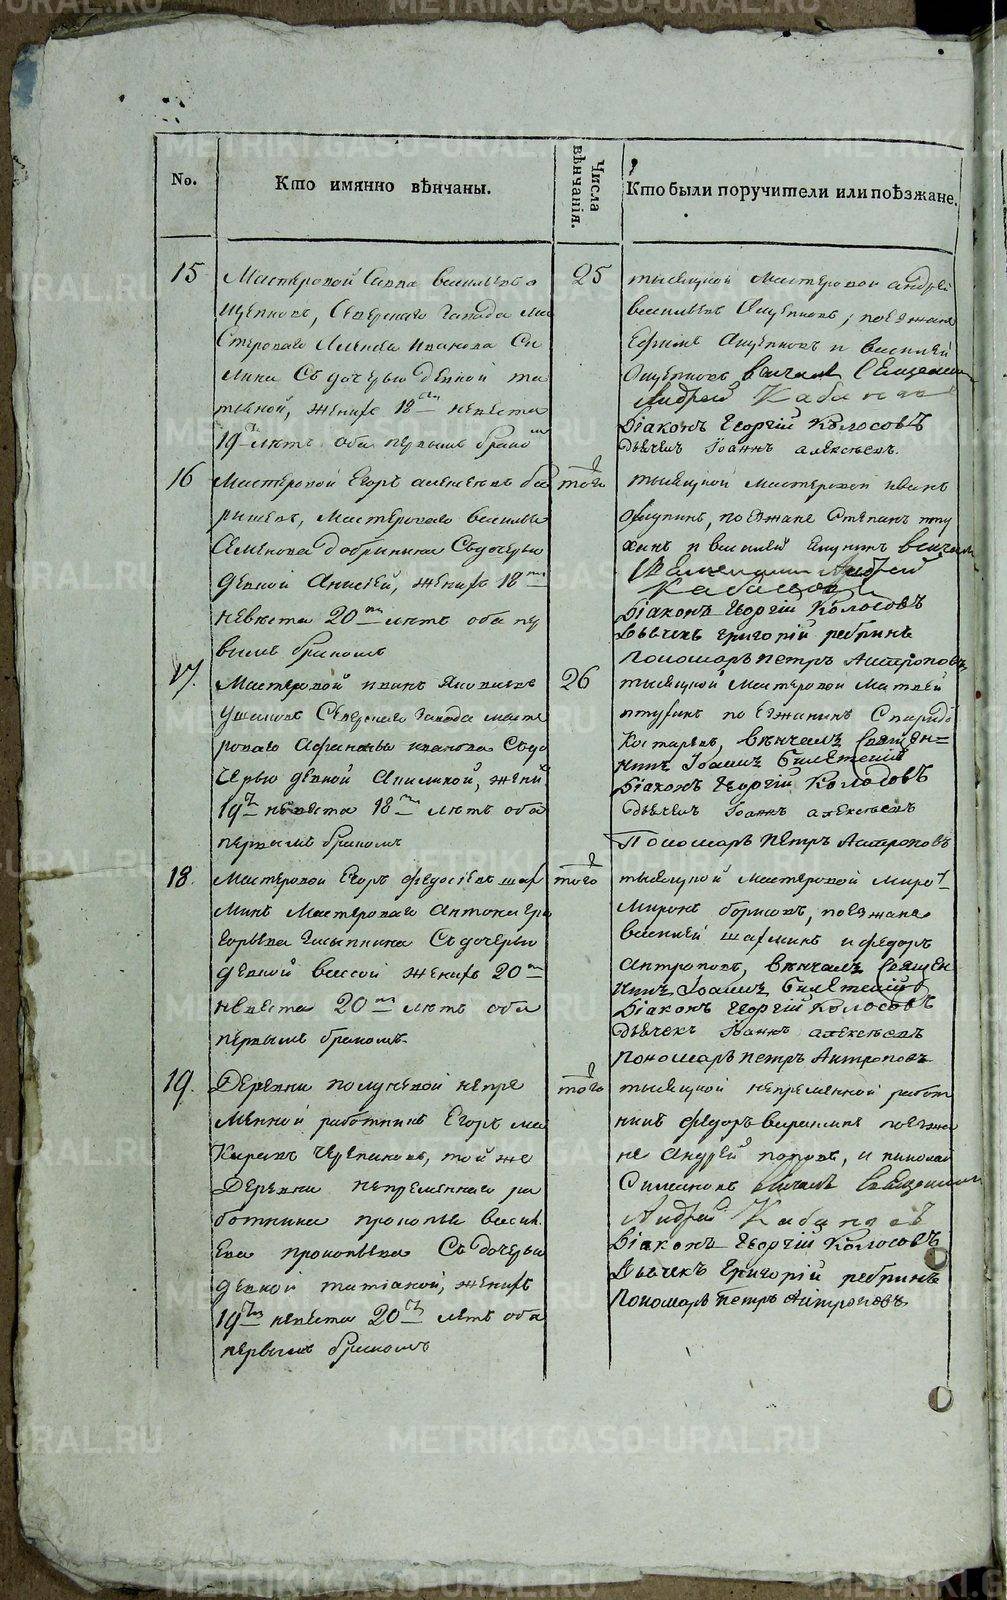 No.
Кто имянно вѣнчаны.
Числа вѣнчанія.
Кто были поручители или поѣзжане.
15
Мастеровой Савва васильевъ о
щепковъ, Северскаго завода ма
стероваго Ивановa Си
лина Съ дочерью девкой та
тьяной, женихъ 18 невеста
19 летъ оба первымъ бракомъ
25
тысяцкой мастеровой андрей
васильевъ Ощепковъ, поезжане
Ефимъ Ощепковъ и василей
Ощепковъ венчалъ Священникъ
Андрей Кабановъ
Діаконъ Георгій Колосовъ
Дьячекъ Іоаннъ алексеевъ.
16
Мастеровой Егоръ алексеевъ ба
рышевъ, мастероваго василья
Семенова Добрынина Съ дочерью
девкой Анисьей, женихъ 18
невеста 20 летъ оба пер
вымъ бракомъ
того
тысяцкой мастеровой иванъ
поезжане Степанъ пту
хинъ и василей венчалъ
Священникъ Андрей
Кабановъ
Діаконъ Георгій Колосовъ
Дьячекъ Григорій ребринъ
Пономарь Петръ Антроповъ
17.
Мастеровой иванъ Яковлевъ
Ушаковъ Северскаго завода масте
роваго Афанасья иванова Съ до
черью девкой Апилиной, женихъ
19 невеста 18 летъ оба
первымъ бракомъ
26
тысяцкой мастеровой Матвей
птухинъ поезжанинъ Спиридо
Костаревъ, вѣнчалъ Священ=
никъ Іоаннъ Бисетскій
Діаконъ Георгій Колосовъ
Дьячекъ Іоаннъ алексеевъ
Пономарь Петръ Антроповъ
18.
Мастеровой Егоръ Федосеевъ шар
минъ Мастероваго Антона гри
горьева Сыпнина Съ дочерью
девкой вассой женихъ 20
невеста 20 летъ оба
первымъ бракомъ
того
тысяцкой мастеровой миро
миронъ борисовъ, поезжане
василей шарминъ и федоръ
антроповъ, вѣнчалъ Священ
никъ Іоаннъ Бисетскій
Діаконъ Георгій Колосовъ
Дьячекъ Іоаннъ алексеевъ
Пономарь петръ Антроповъ
19.
Деревни полуневой непре
менной работникъ Егоръ ма
каровъ черепановъ, той же
Деревни непременнаго ра
ботника прокопья василь
ева прокопьева Съ дочерью
девкой татіаной, женихъ
19 невеста 20 летъ оба
первымъ бракомъ
того
тысяцкой непременной работ
никъ федоръ варакинъ поезжа
не Андрей поповъ, и николай
Симаковъ венчалъ Священникъ
Андрей Кабановъ
Діаконъ Георгій Колосовъ
Дьячекъ Григорій ребринъ
Пономарь петръ Антроповъ
METRIKI.GASO-URAL.RU